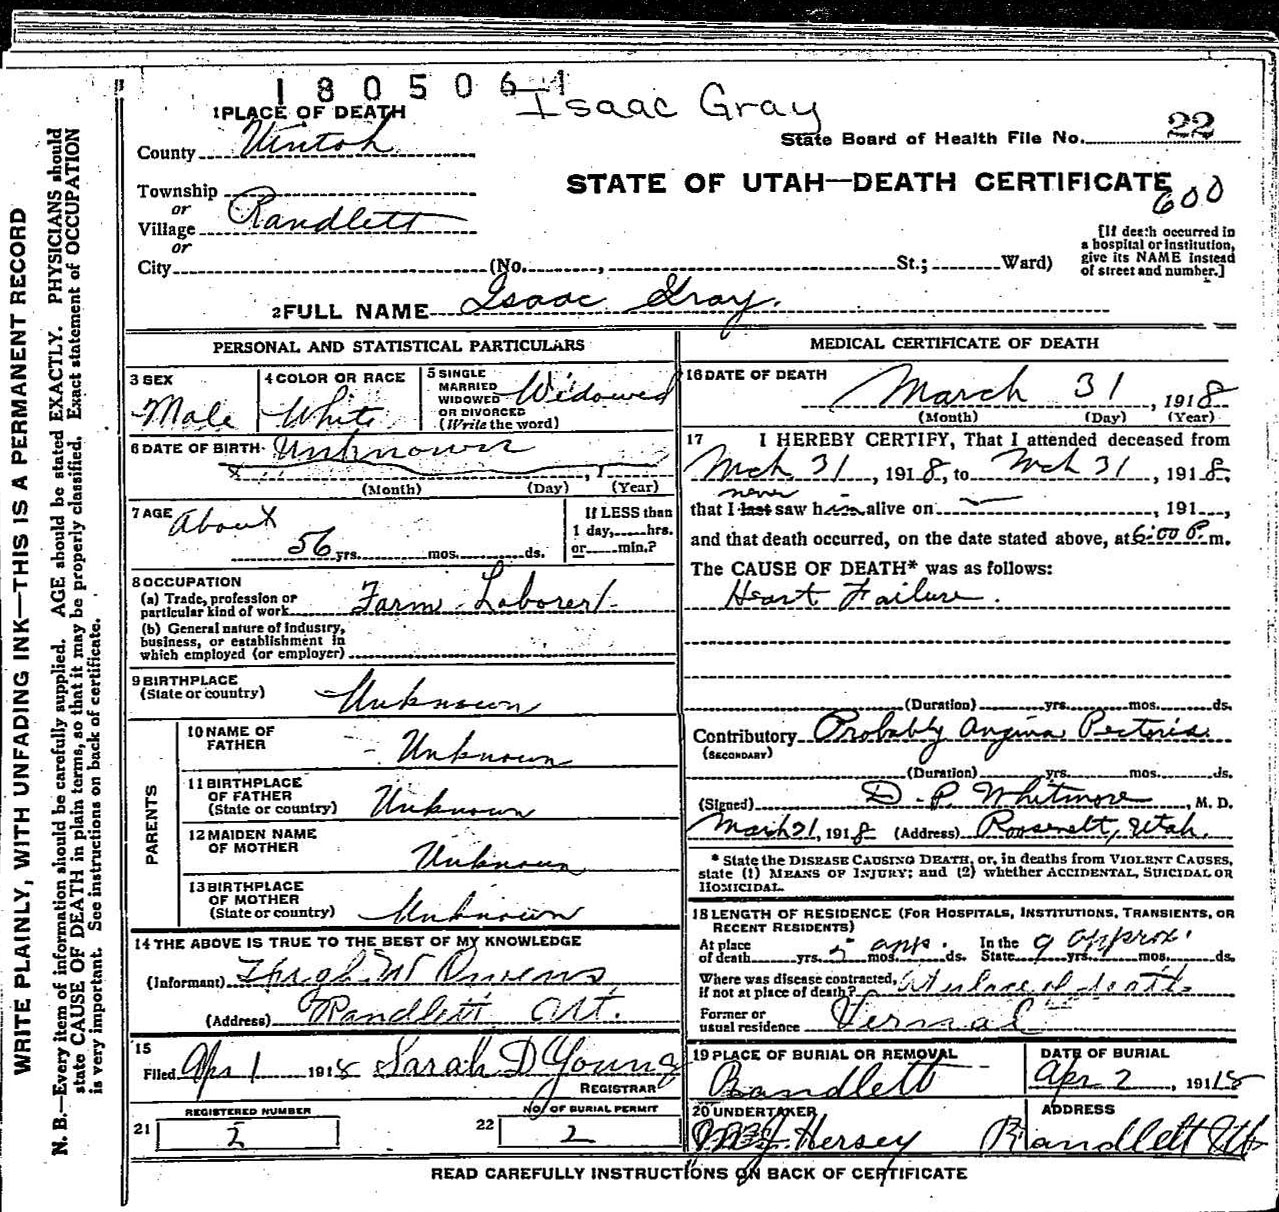 1 8 0 5 0 6 1
Isaac Gray
1 PLACE OF DEATH
State Board of Health File No. 22
County Uintah
STATE OF UTAH—DEATH CERTIFICATE
600
Township
or
Village Randlett
or
City (No. , St.; Ward)
[If death occurred in
a hospital or institution,
give its NAME instead
of street and number.]
2 FULL NAME Isaac Gray.
PERSONAL AND STATISTICAL PARTICULARS
3 SEX
Male
4 COLOR OR RACE
White
5 SINGLE
MARRIED
WIDOWED
OR DIVORCED
(Write the word)
Widowed
6 DATE OF BIRTH Unknown
, 1
(Month) (Day) (Year)
7 AGE
About
56 yrs. mos. ds.
If LESS than
1 day, hrs.
or min.?
8 OCCUPATION
(a) Trade, profession or
particular kind of work Farm Laborer
(b) General nature of industry,
business, or establishment in
which employed (or employer)
9 BIRTHPLACE
(State or country) Unknown
PARENTS
10 NAME OF
FATHER Unknown
11 BIRTHPLACE
OF FATHER
(State or country) Unknown
12 MAIDEN NAME
OF MOTHER Unknown
13 BIRTHPLACE
OF MOTHER
(State or country) Unknown
14 THE ABOVE IS TRUE TO THE BEST OF MY KNOWLEDGE
(Informant) Hugh W Owens
(Address) Randlett Ut.
15
Filed Apr 1 1918 Sarah D Young
REGISTRAR
REGISTERED NUMBER
21 2
NO. OF BURIAL PERMIT
22 2
MEDICAL CERTIFICATE OF DEATH
16 DATE OF DEATH
March 31, 1918
(Month) (Day) (Year)
17 I HEREBY CERTIFY, That I attended deceased from
Mch 31, 1918, to Mch 31, 1918,
never
that I last saw him alive on , 191 ,
and that death occurred, on the date stated above, at 6:00 P. m.
The CAUSE OF DEATH* was as follows:
Heart Failure.
(Duration) yrs. mos. ds.
Contributory Probably Angina Pectoris.
(SECONDARY)
(Duration) yrs. mos. ds.
(Signed) D. P. Whitmore, M. D.
March 31, 1918 (Address) Roosevelt, Utah.
* State the DISEASE CAUSING DEATH, or, in deaths from VIOLENT CAUSES,
state (1) MEANS OF INJURY; and (2) whether ACCIDENTAL, SUICIDAL OR
HOMICIDAL.
18 LENGTH OF RESIDENCE (FOR HOSPITALS, INSTITUTIONS, TRANSIENTS, OR
RECENT RESIDENTS)
At place
of death yrs. 5 app. mos. ds. In the
State 9 approx. yrs. mos. ds.
Where was disease contracted,
if not at place of death? At place of death
Former or
usual residence Vernal
19 PLACE OF BURIAL OR REMOVAL
Randlett
DATE OF BURIAL
Apr 2, 19118
20 UNDERTAKER
Hersey
ADDRESS
Randlett Ut
READ CAREFULLY INSTRUCTIONS ON BACK OF CERTIFICATE
WRITE PLAINLY, WITH UNFADING INK—THIS IS A PERMANENT RECORD
N. B.—Every item of information should be carefully supplied. AGE should be stated EXACTLY. PHYSICIANS should
state CAUSE OF DEATH in plain terms, so that it may be properly classified. Exact statement of OCCUPATION
is very important. See instructions on back of certificate.